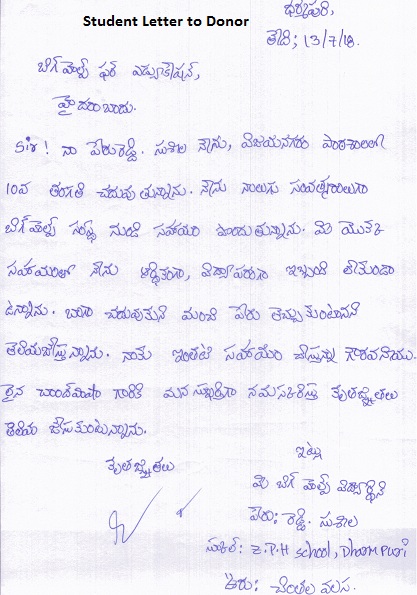 Student Letter to Donor
ధర్మపురి,
తేది; 13/7/18.
బిగ్ హెల్ప్ ఫర్ ఎడ్యుకేషన్,
హైదరాబాదు.
Sir! నా పేరు రెడ్డి. సుశీల నేను, విజయనగరం పాఠశాలలో
10వ తరగతి చదువుతున్నాను. నేను నాలుగు సంవత్సరాలుగా
బిగ్ హెల్ప్ సంస్థ నుండి సహాయం పొందుతున్నాను. మీ యొక్క
సహాయంతో నేను ఆర్థికంగా, విద్యాపరంగా ఇబ్బంది లేకుండా
ఉన్నాను. బాగా చదువుకుని మంచి పేరు తెచ్చుకుంటానని
తెలియజేస్తున్నాను. నాకు ఇంతటి సహాయం చేస్తున్న గౌరవనీయు-
లైన చాంద్ పాషా గారికి మనస్ఫూర్తిగా నమస్కరిస్తూ కృతజ్ఞతలు
తెలియ జేసుకుంటున్నాను.
కృతజ్ఞతలు
ఇట్లు
మీ బిగ్ హెల్ప్ విద్యార్థిని
పేరు: రెడ్డి. సుశీల
స్కూల్: Z.P.H School, Dharmapuri
ఊరు: చింతల వలస.